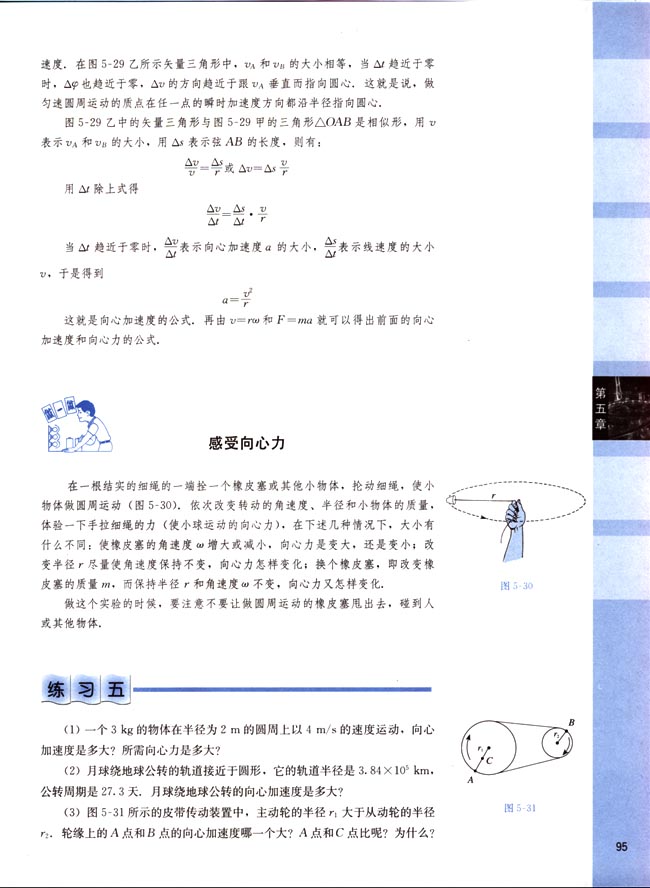 速度．在图 5-29 乙所示矢量三角形中，vA 和 vB 的大小相等，当 Δt 趋近于零
时，Δφ 也趋近于零，Δv 的方向趋近于跟 vA 垂直而指向圆心．这就是说，做
匀速圆周运动的质点在任一点的瞬时加速度方向都沿半径指向圆心．
图 5-29 乙中的矢量三角形与图 5-29 甲的三角形△OAB 是相似形，用 v
表示 vA 和 vB 的大小，用 Δs 表示弦 AB 的长度，则有：
Δv/v=Δs/r 或 Δv=Δs v/r
用 Δt 除上式得
Δv/Δt=Δs/Δt·v/r
当 Δt 趋近于零时，Δv/Δt表示向心加速度 a 的大小，Δs/Δt表示线速度的大小
v，于是得到
a=v²/r
这就是向心加速度的公式．再由 v=rω 和 F=ma 就可以得出前面的向心
加速度和向心力的公式．
第五章
做一做
感受向心力
在一根结实的细绳的一端拴一个橡皮塞或其他小物体，抡动细绳，使小
物体做圆周运动（图 5-30）．依次改变转动的角速度、半径和小物体的质量，
体验一下手拉细绳的力（使小球运动的向心力），在下述几种情况下，大小有
什么不同：使橡皮塞的角速度 ω 增大或减小，向心力是变大，还是变小；改
变半径 r 尽量使角速度保持不变，向心力怎样变化；换个橡皮塞，即改变橡
皮塞的质量 m，而保持半径 r 和角速度 ω 不变，向心力又怎样变化．
做这个实验的时候，要注意不要让做圆周运动的橡皮塞甩出去，碰到人
或其他物体．
r
图 5-30
练习五
（1）一个 3 kg 的物体在半径为 2 m 的圆周上以 4 m/s 的速度运动，向心
加速度是多大？所需向心力是多大？
（2）月球绕地球公转的轨道接近于圆形，它的轨道半径是 3.84×10⁵ km，
公转周期是 27.3 天．月球绕地球公转的向心加速度是多大？
（3）图 5-31 所示的皮带传动装置中，主动轮的半径 r₁ 大于从动轮的半径
r₂．轮缘上的 A 点和 B 点的向心加速度哪一个大？A 点和 C 点比呢？为什么？
B
r₂
r₁
C
A
图 5-31
95